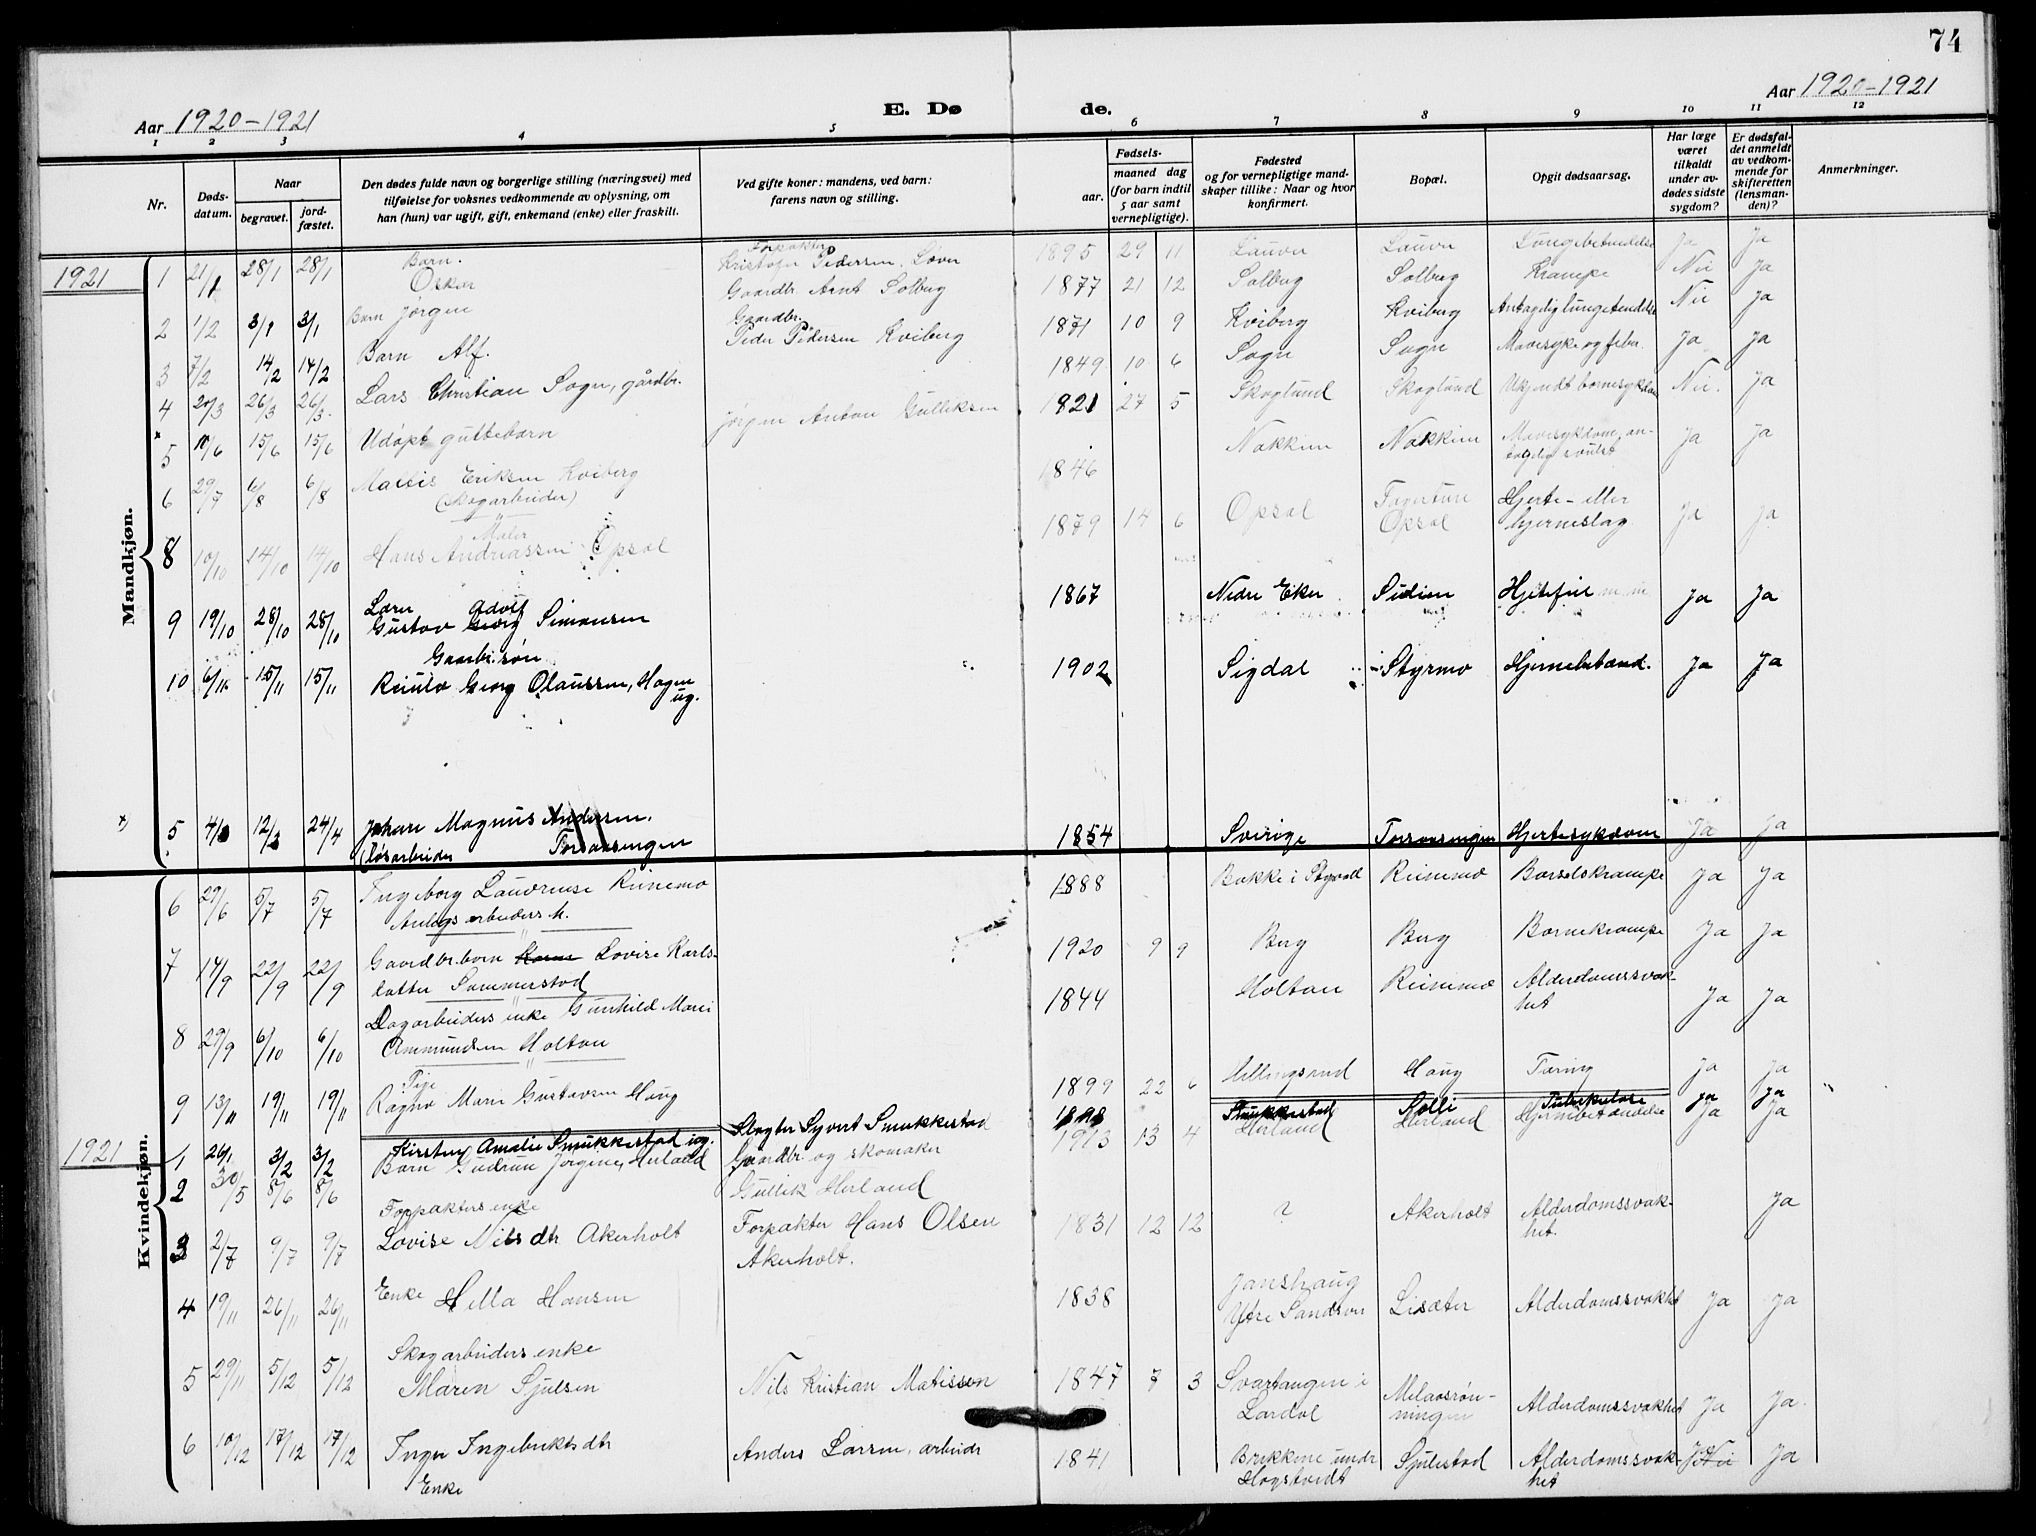 74
Aar 1920-1921
E. Døde.
Aar 1920-1921
1 2 3 4 5 6 7 8 9 10 11 12
Nr.
Døds-
datum.
Naar
begravet.
jord-
fæstet.
Den dødes fulde navn og borgerlige stilling (næringsvei) med
tilføielse for voksnes vedkommende av oplysning, om
han (hun) var ugift, gift, enkemand (enke) eller fraskilt.
Ved gifte koner: mandens, ved barn:
farens navn og stilling.
Fødsels-
aar.
maaned dag
(for barn indtil
5 aar samt
vernepligtige).
Fødested
og for vernepligtige mand-
skaper tillike: Naar og hvor
konfirmert.
Bopæl.
Opgit dødsaarsag.
Har læge
været
tilkaldt
under av-
dødes sidste
sygdom?
Er dødsfal-
det anmeldt
av vedkom-
mende for
skifteretten
(lensman-
den)?
Anmerkninger.
Mandkjøn.
1921 1 21/1 28/1 28/1 Barn. Oskar
Forpakter Kristofer Pedersen
1895 29 11 Lauvn Lauvn Lungebetændelse Ja Ja
2 1/2 3/1 3/1 Barn Jørgen
Gaardbr. Arnt Solberg
1877 21 12 Solberg Solberg Krampe Nei Ja
3 7/2 14/2 14/2 Barn Alf.
Gaardbr. Peder Pedersen Kviberg
1871 10 9 Kviberg Kviberg Antagelig lungebetændelse Nei Ja
4 20/3 26/3 26/3 Lars Christian Sogn, gårdbr.
1849 10 6 Sogn Sogn Mavesyke og feber Ja Ja
5 10/6 15/6 15/6 Udøpt guttebarn
Jørgen Anton Gulliksen
1821 27 5 Skoglund Skoglund Ukjendt barnesykdom Nei. Ja
6 29/7 6/8 6/8 Mattis Eriksen Kviberg
(Skogarbeider)
1846 Nakkim Nakkim Mavesykdom, an-
tagelig svulst Ja Ja
8 10/10 14/10 14/10 Maler
Hans Andreassen Opsal
1879 14 6 Opsal Opsal Hjerte- eller
hjerneslag Ja Ja
9 19/10 28/10 28/10 Lærer Adolf
Gustav Georg Simonsen
1867 Nedre Eker Hjertefeil Ja Ja
10 6/11 15/11 15/11 Gaardbr.søn
Georg Olaussen, Hagen
ug.
1902 Sigdal Styrmo Hjernebetænd. Ja Ja
5 12/3 24/4 Johan Magnus Andersen.
(løsarbeider
1854 Sverige Hjertesykdom Ja Ja
Kvindekjøn.
6 29/6 5/7 5/7 Ingeborg Lauvrense Reinemo
Anlægsarbeiders h.
1888 Bakke i Reinemo Barselskrampe Ja Ja
7 14/9 22/9 22/9 Gaardbr. barn Karen Lovise Karls-
datter Sommerstad
1920 9 9 Berg Berg Barnekrampe Ja Ja
8 29/9 6/10 6/10 Dagarbeiders enke Gunhild Marie
Ammundsen Holtan
1844 Holtan Reinemo Alderdomssvak-
het Ja Ja
9 13/11 19/11 19/11 Pige
Ragna Marie Gustavsen Haug
1899 22 6 Hellingsrud Haug Tæring Ja Ja
1921 1 26/1 3/2 3/2 Kirsten Amalie Smukkestad ug.
Slagter Syvert Smukkestad
Smukkestad Solli Tuberkulose Ja Ja
2 30/5 8/6 8/6 Barn Gudrun Jørgine Herland
Gaardbr. og skomaker
Gullik Herland
1913 13 4 Herland Herland Hjernebetændelse Ja Ja
3 2/7 9/7 9/7 Forpakters enke
Lovise Nilsdtr Akerholt
Forpakter Hans Olsen
Akerholt.
1831 12 12 ? Akerholt Alderdomssvak-
het. Ja
4 19/11 26/11 26/11 Enke Hella Hansen
1838 Janshaug
Ytre Sandsvær Lisæter Alderdomssvakhet Ja Ja
5 29/11 5/12 5/12 Skogarbeiders enke
Maren Sjulsen
Nils Kristian Matisson
1847 7 3 Svartangen i
Lardal Melaasrøn-
ningen Alderdomssvakhet Ja Ja
6 10/12 17/12 17/12 Inger Ingebrektsdtr
Enke
Anders Larsen, arbeider
1841 Brekkene under
Hogstvedt Sjulestad Alderdomssvak-
het Ja Nei Ja